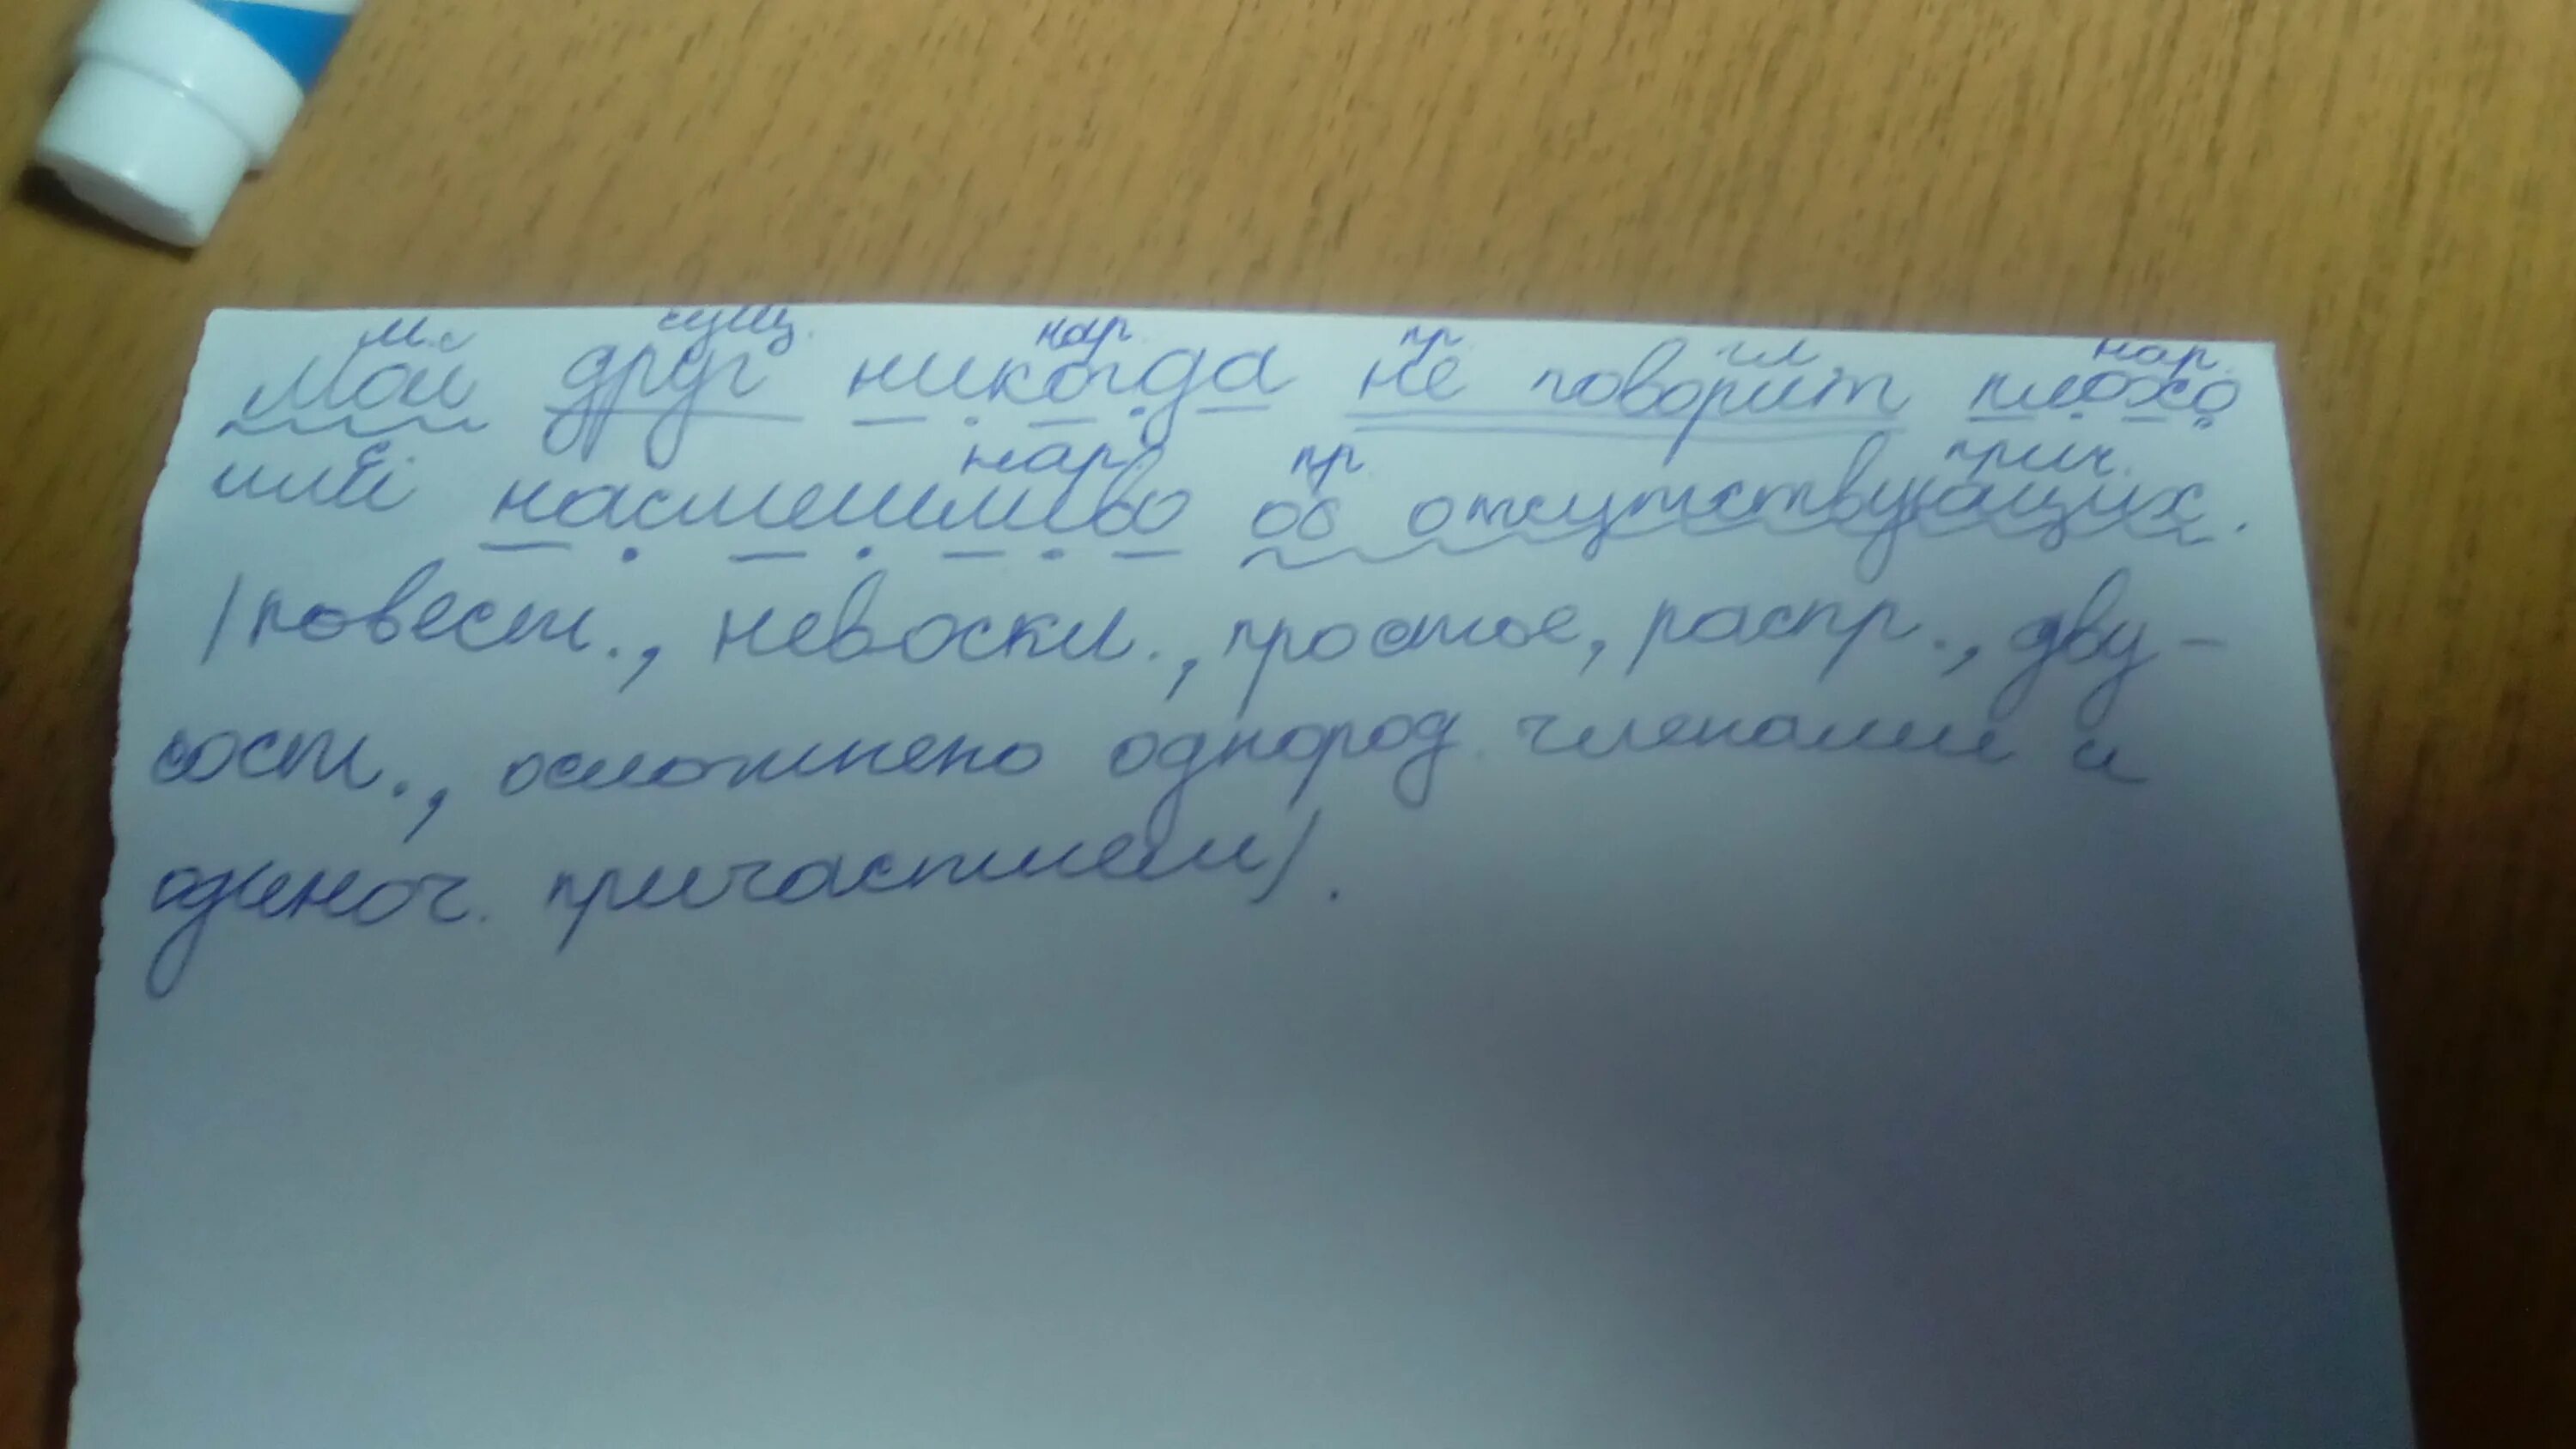 м.с сущ. нар. пр. гл. нар.
Мой друг никогда не говорит плохо
с. нар. пр. прич.
или насмешливо об отсутствующих.
(повест., невоскл., простое, распр., дву-
сост., осложнено однород. членами и
одиноч. причастием).